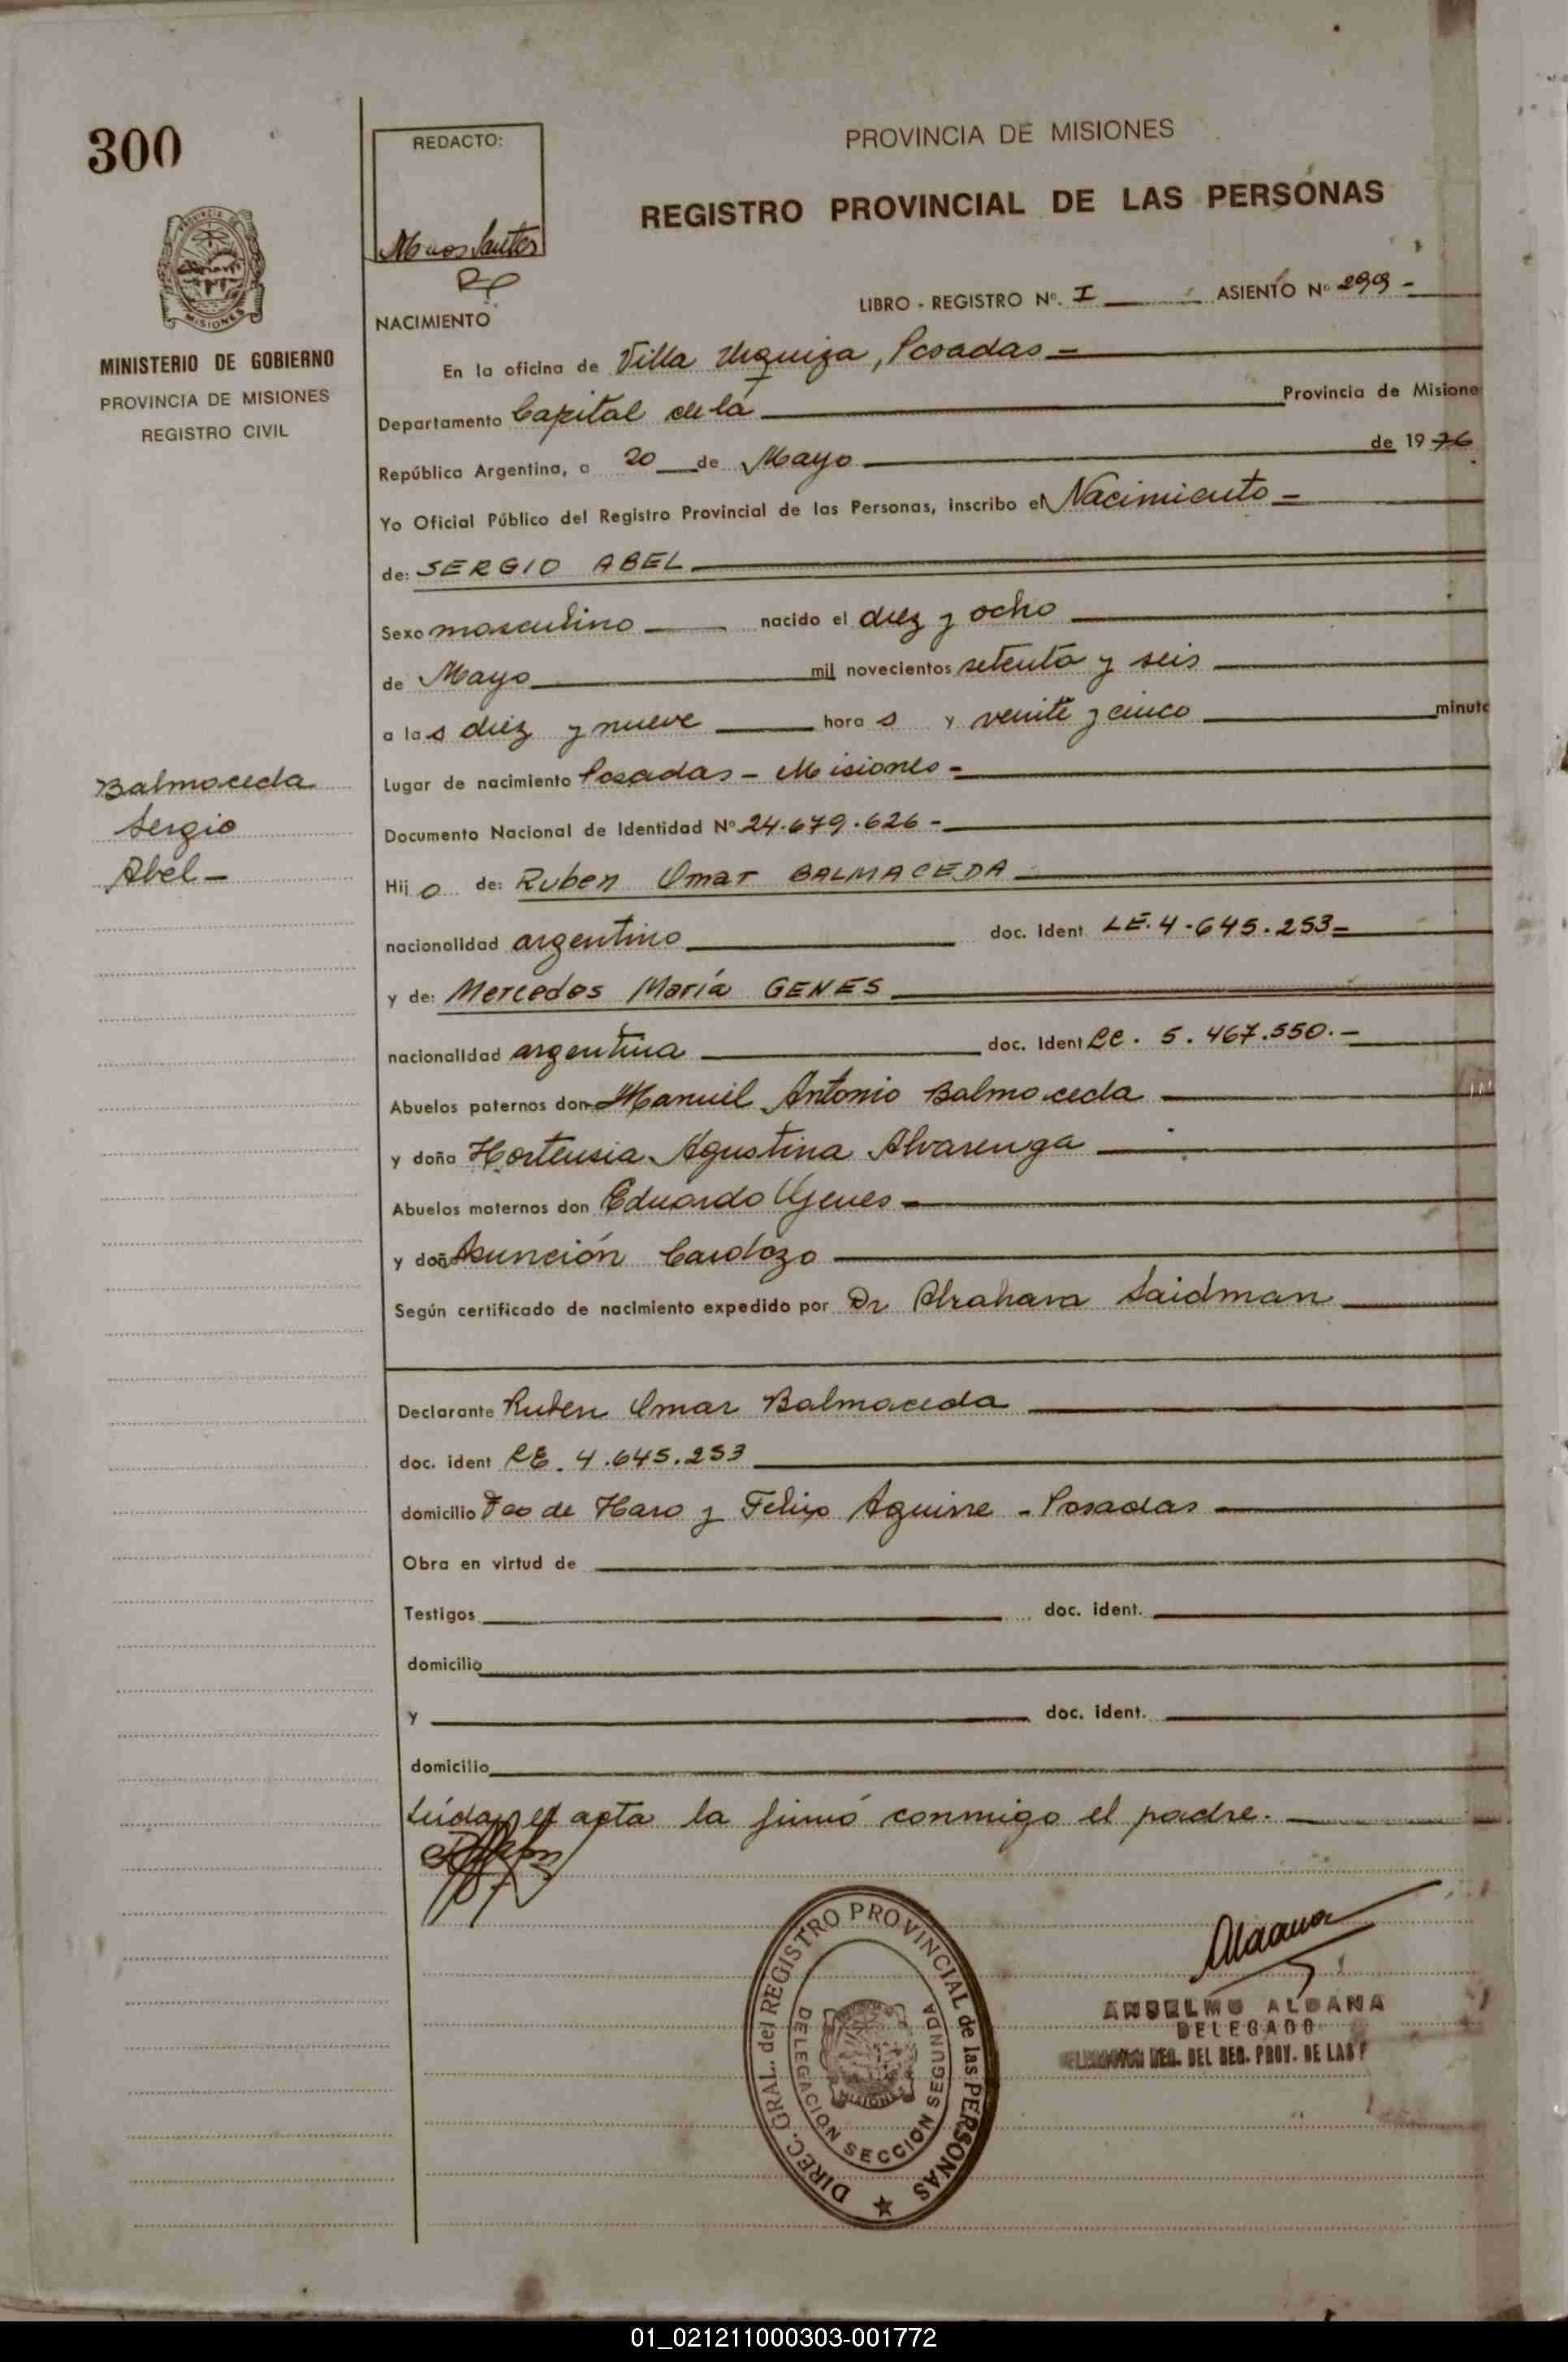 300
REDACTO:
PROVINCIA DE MISIONES
REGISTRO PROVINCIAL DE LAS PERSONAS
LIBRO - REGISTRO Nº. I ASIENTO Nº 299 -
NACIMIENTO
MINISTERIO DE GOBIERNO
PROVINCIA DE MISIONES
REGISTRO CIVIL
En la oficina de Villa Urquiza, Posadas -
Departamento Capital de la Provincia de Misione
República Argentina, a 20 de Mayo de 1976
Yo Oficial Público del Registro Provincial de las Personas, inscribo el Nacimiento -
de: SERGIO ABEL
Sexo masculino nacido el diez y ocho
de Mayo mil novecientos setenta y seis
a las diez y nueve hora s y veinte y cinco minuto
Lugar de nacimiento Posadas - Misiones -
Balmaceda
Sergio
Abel -
Documento Nacional de Identidad Nº 24.679.626 -
Hijo de: Ruben Omar BALMACEDA
nacionalidad argentino doc. ident LE. 4.645.253 -
y de: Mercedes María GENES
nacionalidad argentina doc. ident LC. 5.467.550. -
Abuelos paternos don Manuel Antonio Balmaceda
y doña Hortensia Agustina Alvarenga
Abuelos maternos don Eduardo Genes -
y doña Asunción Cardozo
Según certificado de nacimiento expedido por Dr Abraham Saidman
Declarante Ruben Omar Balmaceda
doc. ident LE. 4.645.253
domicilio Fco de Haro y Felix Aguirre - Posadas
Obra en virtud de
Testigos doc. ident.
domicilio
y doc. ident.
domicilio
Leída el acta la firmó conmigo el padre. -
DIREC. GRAL. del REGISTRO PROVINCIAL de las PERSONAS
DELEGACION SECCION SEGUNDA
MISIONES
ANSELMO ALDANA
DELEGADO
DEL REG. PROV. DE LAS P
01_021211000303-001772